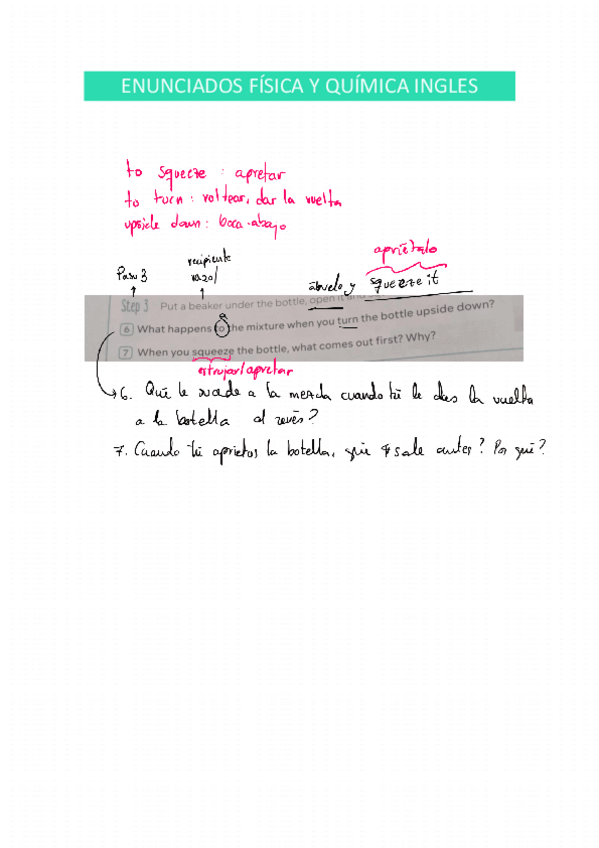 ENUNCIADOS FÍSICA Y QUÍMICA INGLES
to squeeze : apretar
to turn : voltear, dar la vuelta
upside down : boca-abajo
apriétalo
recipiente
Paso 3
vazo/
ábrelo y squeeze it
Step 3 Put a beaker under the bottle, open it and
a
6 What happens to the mixture when you turn the bottle upside down?
7 When you squeeze the bottle, what comes out first? Why?
estrujar/apretar
6. Qué le sucede a la mezcla cuando tú le das la vuelta
a la botella al revés?
7. Cuando tú aprietas la botella, qué sale antes? Por qué?